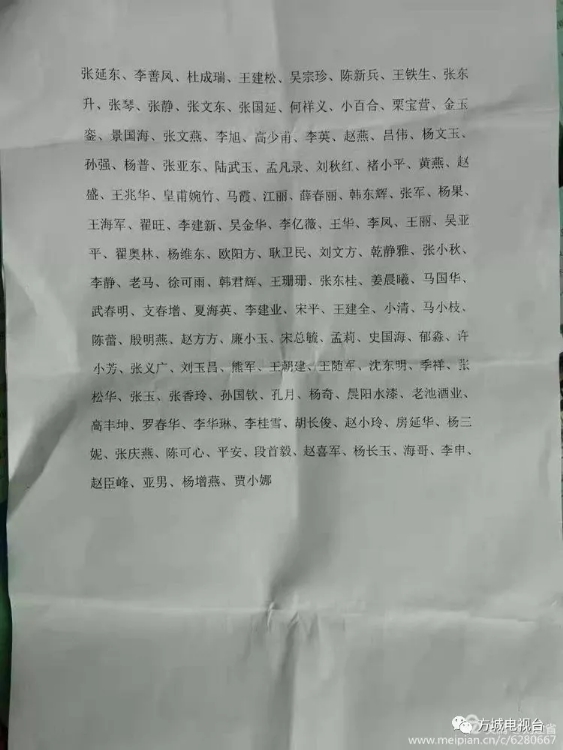 张延东、李善凤、杜成瑞、王建松、吴宗珍、陈新兵、王铁生、张东
升、张琴、张静、张文东、张国延、何祥义、小百合、栗宝营、金玉
銮、景国海、张文燕、李旭、高少甫、李英、赵燕、吕伟、杨文玉、
孙强、杨普、张亚东、陆武玉、孟凡录、刘秋红、褚小平、黄燕、赵
盛、王兆华、皇甫婉竹、马霞、江丽、薛春丽、韩东辉、张军、杨果、
王海军、翟旺、李建新、吴金华、李亿薇、王华、李凤、王丽、吴亚
平、翟奥林、杨维东、欧阳方、耿卫民、刘文方、乾静雅、张小秋、
李静、老马、徐可雨、韩君辉、王珊珊、张东桂、姜晨曦、马国华、
武春明、支春增、夏海英、李建业、宋平、王建全、小清、马小枝、
陈蕾、殷明燕、赵方方、廉小玉、宋总毓、孟莉、史国海、郁淼、许
小芳、张义广、刘玉昌、熊军、王朝建、王随军、沈东明、季祥、张
松华、张玉、张香玲、孙国钦、孔月、杨奇、晨阳水漆、老池酒业、
高丰坤、罗春华、李华琳、李桂雪、胡长俊、赵小玲、房延华、杨三
妮、张庆燕、陈可心、平安、段首毅、赵喜军、杨长玉、海哥、李申、
赵臣峰、亚男、杨增燕、贾小娜
方城电视台
www.meipian.cn/c/6280667